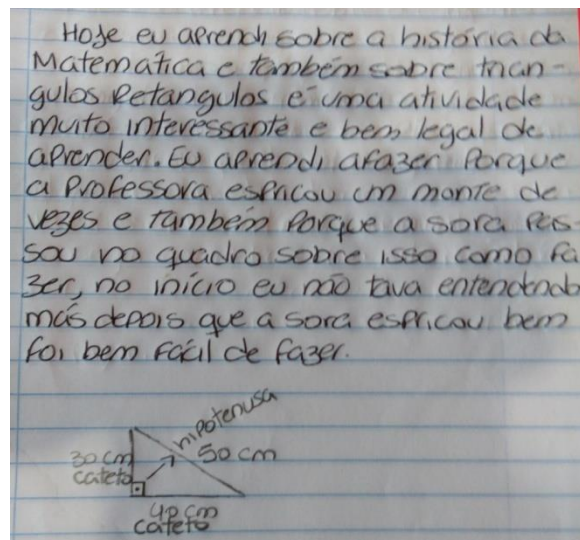 Hoje eu aprendi sobre a história da
Matemática e também sobre trian-
gulos Retangulos é uma atividade
muito interessante e bem legal de
aprender. Eu aprendi afazer Porque
a Professora espricou um monte de
vezes e também Porque a sora pas
sou no quadro sobre isso como fa
zer, no início eu não tava entendendo
mas depois que a sora espricou bem
foi bem fácil de fazer.
hipotenusa
30 cm
50 cm
cateto
40 cm
cateto